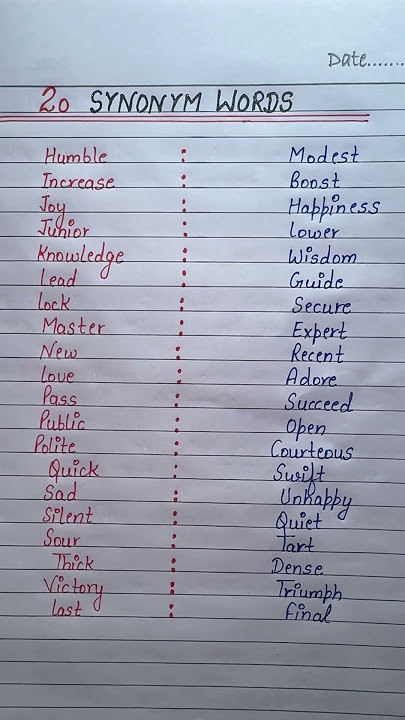 Date.......
20 SYNONYM WORDS
Humble : Modest
Increase : Boost
Joy : Happiness
Junior : Lower
Knowledge : Wisdom
Lead : Guide
lock : Secure
Master : Expert
New : Recent
Love : Adore
Pass : Succeed
Public : Open
Polite : Courteous
Quick : Swift
Sad : Unhappy
Silent : Quiet
Sour : Tart
Thick : Dense
Victory : Triumph
last : final